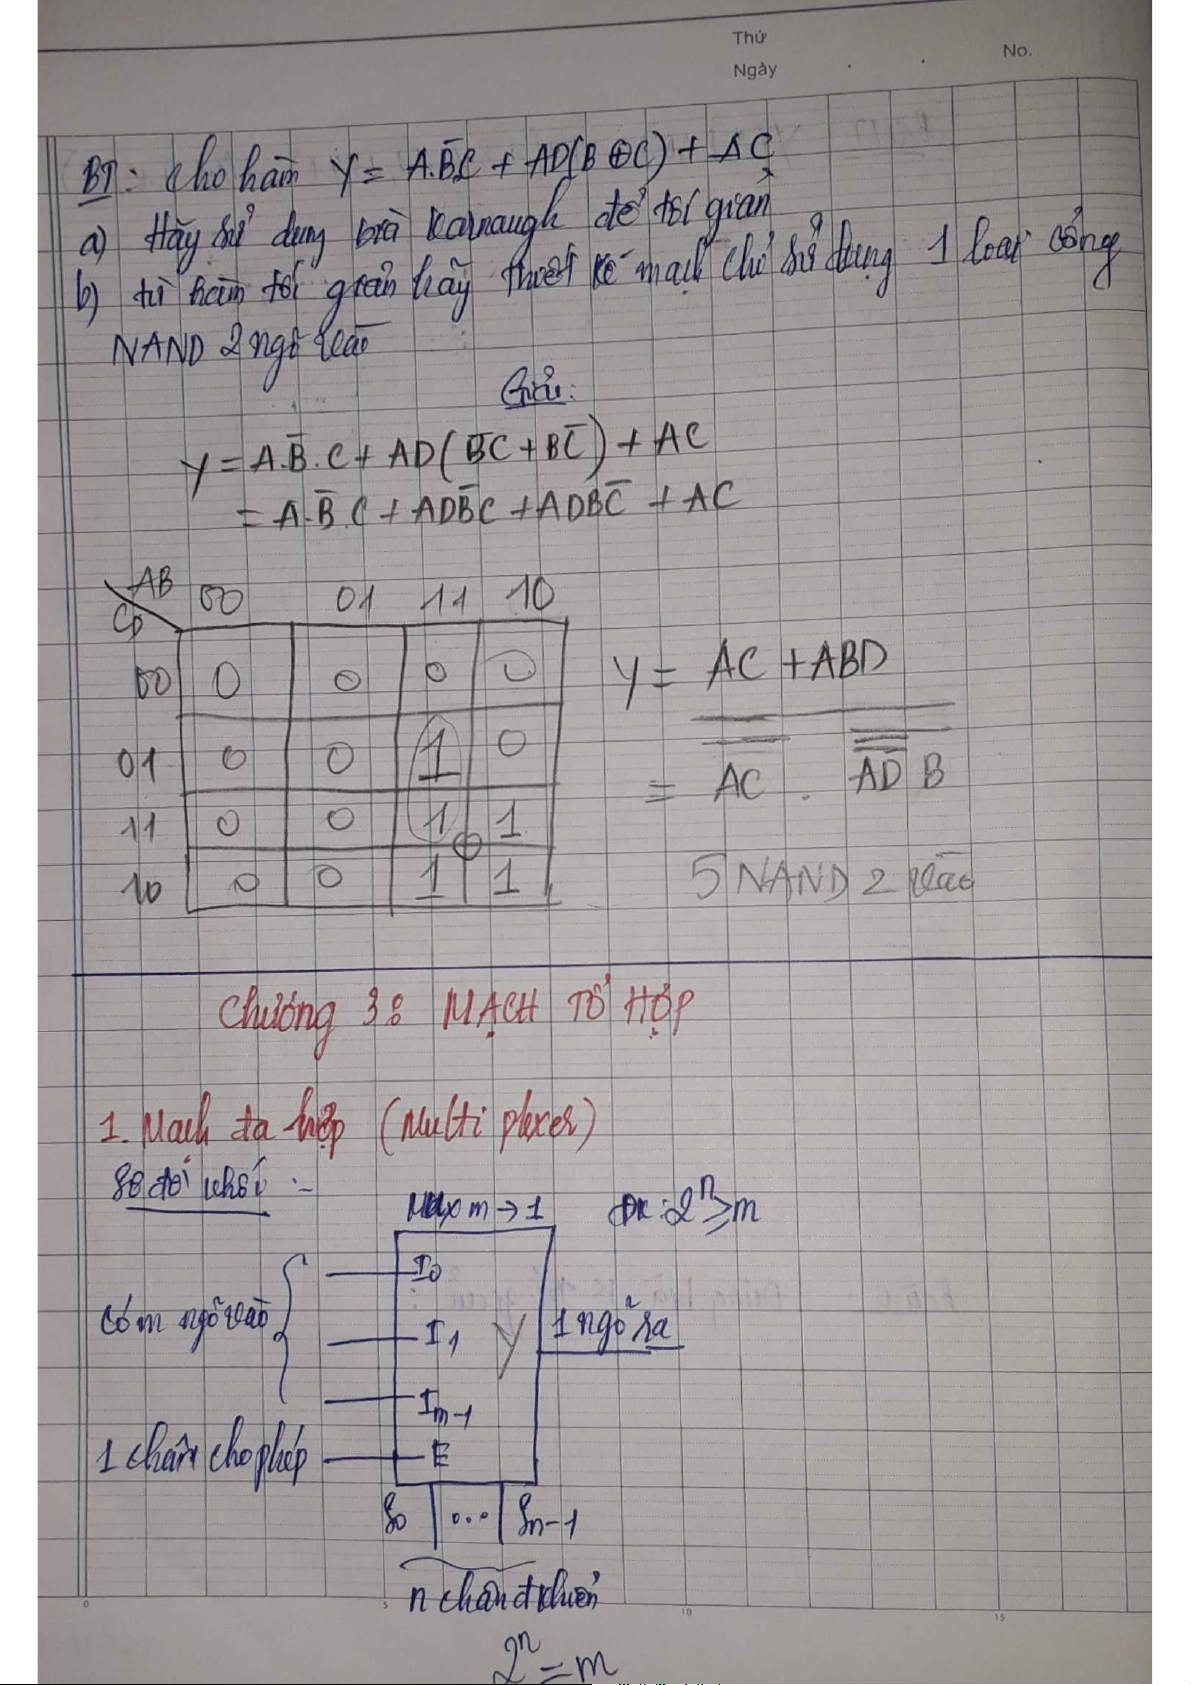 Thứ
Ngày
No.
BT: Cho hàm Y = A.B̅.C + AD(B⊕C) + AC
a) Hãy sử dụng bìa Karnaugh để tối giản
b) từ hàm tối giản hãy thiết kế mạch chỉ sử dụng 1 loại cổng
NAND 2 ngõ vào
Giải:
Y = A.B̅.C + AD(B̅C + BC̅) + AC
= A.B̅.C + ADB̅C + ADBC̅ + AC
AB
CD
00 01 11 10
00 0 0 0 0
01 0 0 1 0
11 0 0 1 1
10 0 0 1 1
Y = AC + ABD
= AC . AD B
5 NAND 2 vào
Chương 3: MẠCH TỔ HỢP
1. Mạch đa hợp (Multi plexer)
Sơ đồ khối :-
Mux m → 1
ĐK: 2ⁿ ≥ m
I₀
Có m ngõ vào
I₁
Y
1 ngõ ra
Iₘ₋₁
1 chân cho phép
E
S₀ ... Sₙ₋₁
n chân đ khiển
2ⁿ = m
0 5 10 15